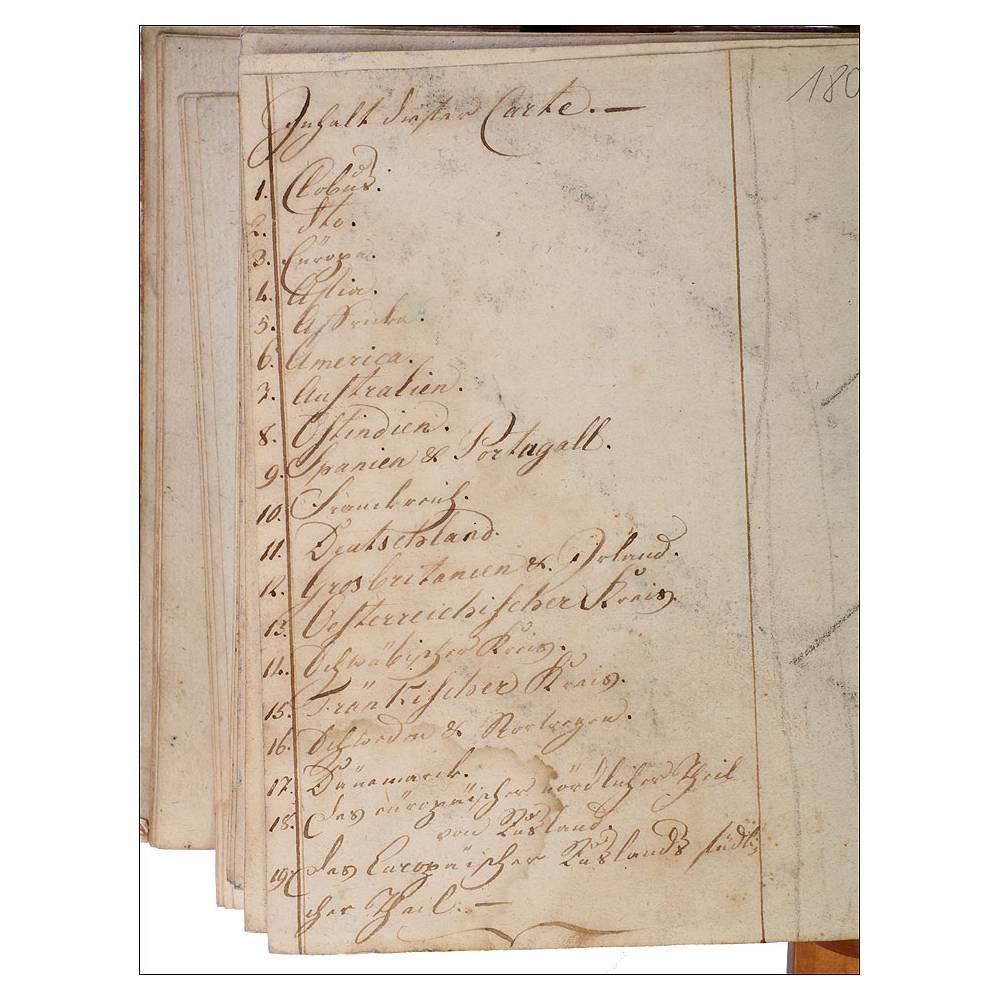 Inhalt dieser Carte. —
180
1. Globus.
2. dto.
3. Europa.
4. Assia.
5. Affrieka.
6. America.
7. Australien.
8. Ostindien.
9. Spanien & Portugall.
10. Franckreich.
11. Deutschland.
12. Grosbritanien & Irland.
13. Oesterreichischer Kreis.
14. Schwäbischer Kreis.
15. Fränkischer Kreis.
16. Schweden & Norwegen.
17. Dänemarck.
18. Des europäischer nördlicher Theil
von Rusland.
19. Des Europäischer Ruslands südli-
cher Theil. —